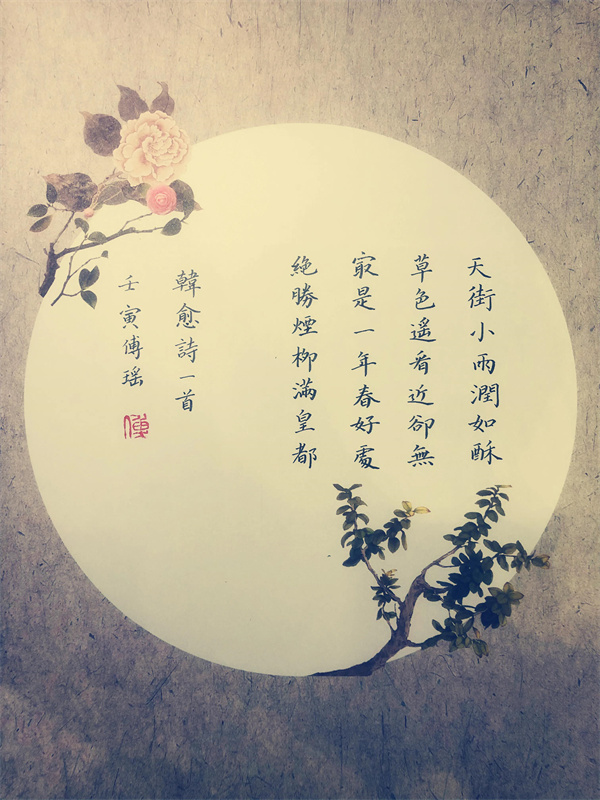 天街小雨潤如酥
草色遥看近卻無
㝡是一年春好處
絶勝煙柳滿皇都
韓愈詩一首
壬寅傅瑶
傅